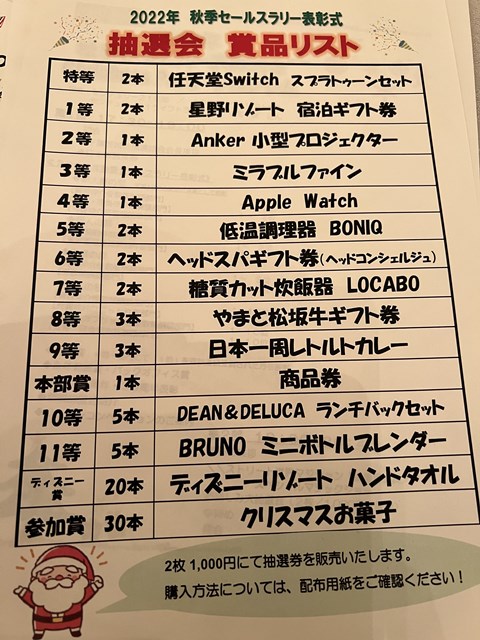 2022年 秋季セールスラリー表彰式
抽選会 賞品リスト
特等 2本 任天堂Switch スプラトゥーンセット
1等 2本 星野リゾート 宿泊ギフト券
2等 1本 Anker 小型プロジェクター
3等 1本 ミラブルファイン
4等 1本 Apple Watch
5等 2本 低温調理器 BONIQ
6等 2本 ヘッドスパギフト券(ヘッドコンシェルジュ)
7等 2本 糖質カット炊飯器 LOCABO
8等 3本 やまと松坂牛ギフト券
9等 3本 日本一周レトルトカレー
本部賞 1本 商品券
10等 5本 DEAN&DELUCA ランチバックセット
11等 5本 BRUNO ミニボトルブレンダー
ディズニー賞 20本 ディズニーリゾート ハンドタオル
参加賞 30本 クリスマスお菓子
2枚 1,000円にて抽選券を販売いたします。
購入方法については、配布用紙をご確認ください!